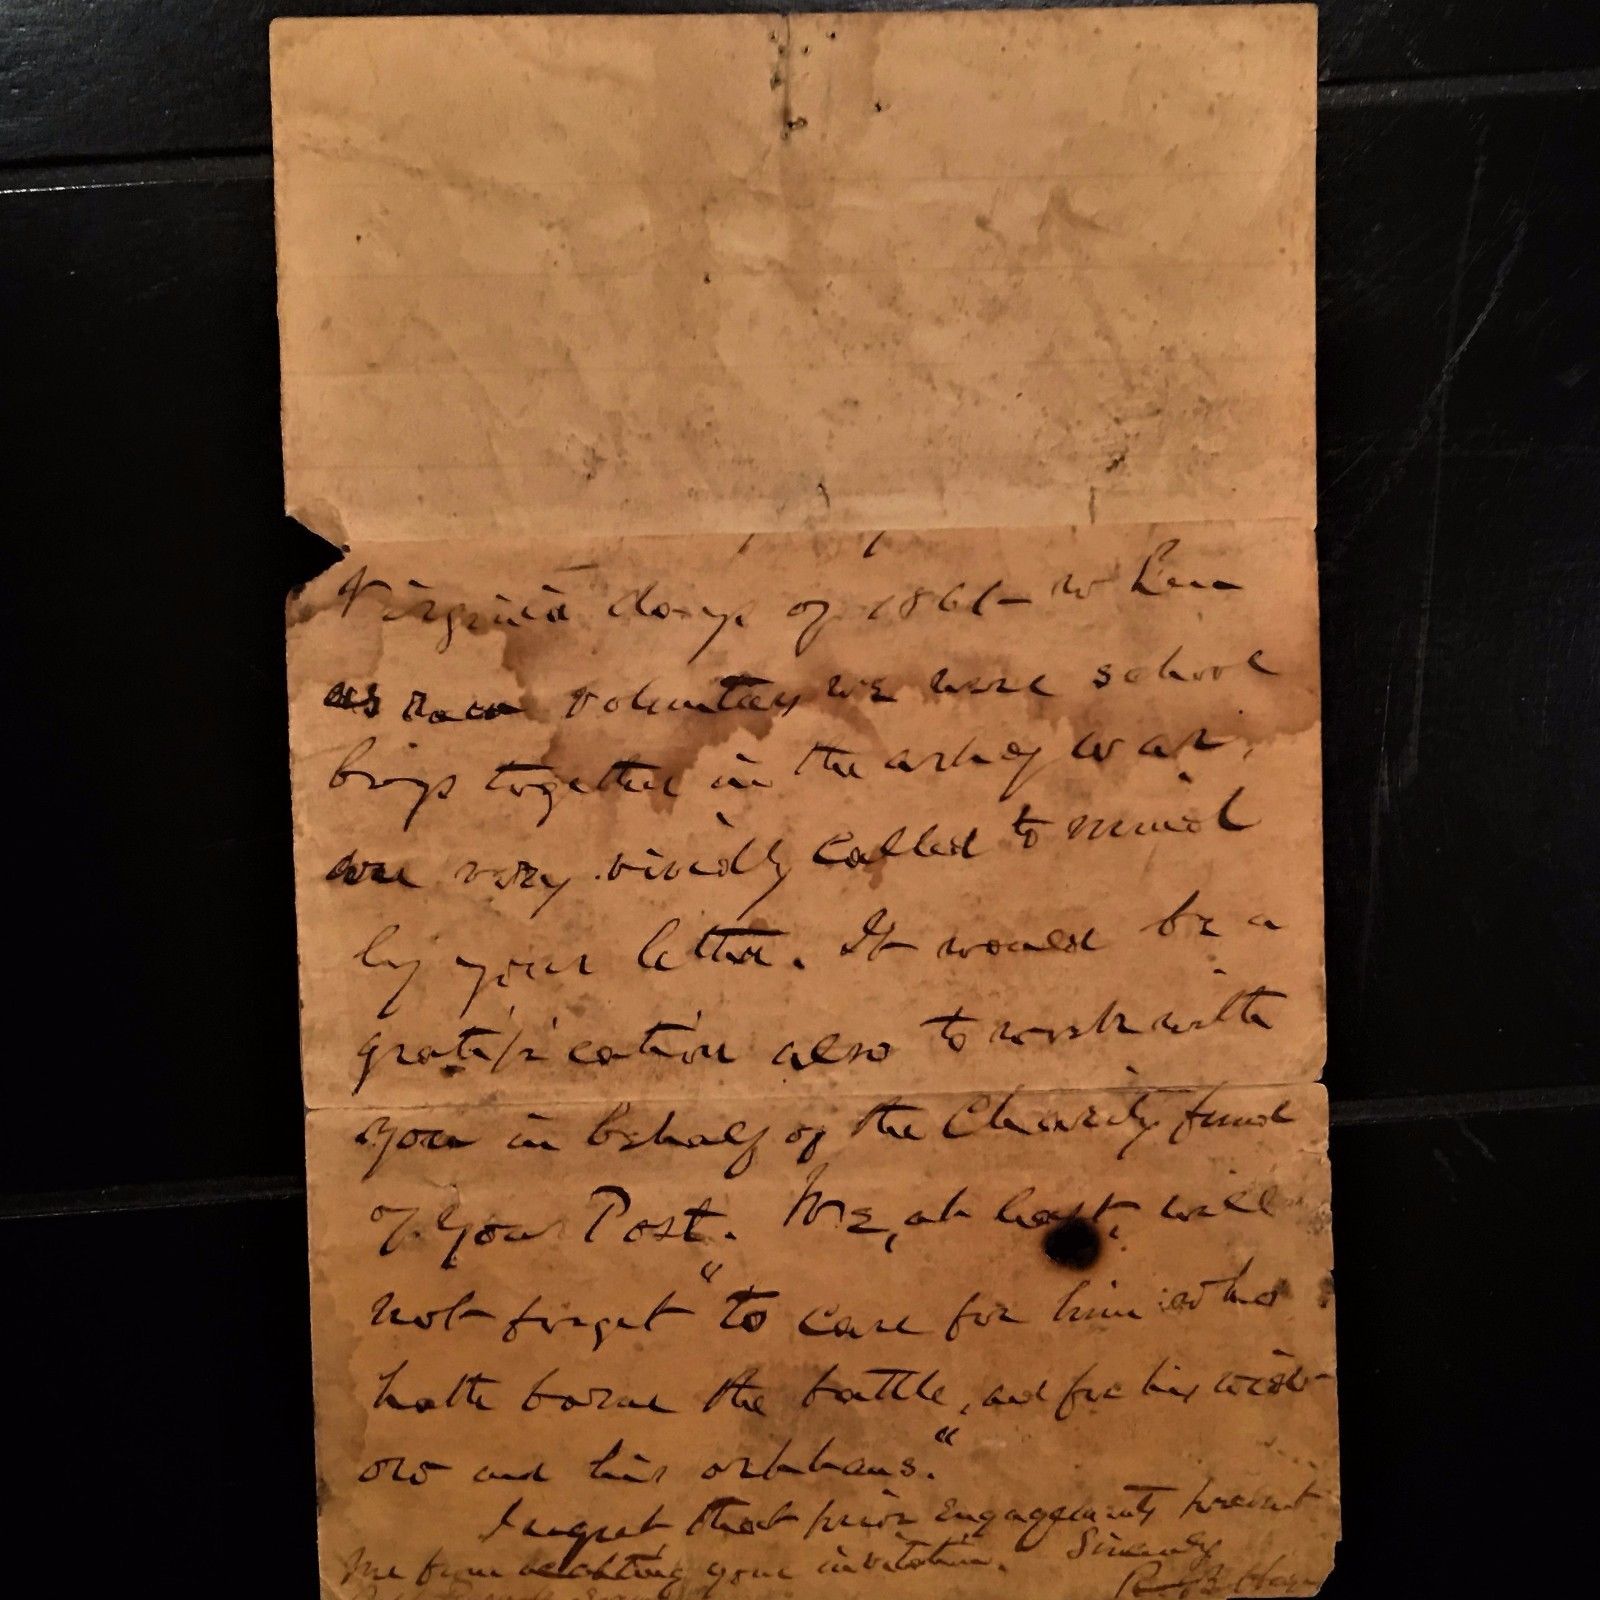 Virginia days of 1861 - when
as raw voluntary we were school
boys together in the art of war,
are very vividly called to mind
by your letter. It would be a
gratification also to work with
you in behalf of the Charity fund
of your Post. We, at least, will
not forget "to care for him who
hath borne the battle, and for his wid-
ow and his orphans."
I regret that prior engagements prevent
me from accepting your invitation. Sincerely
R. B. Hayes